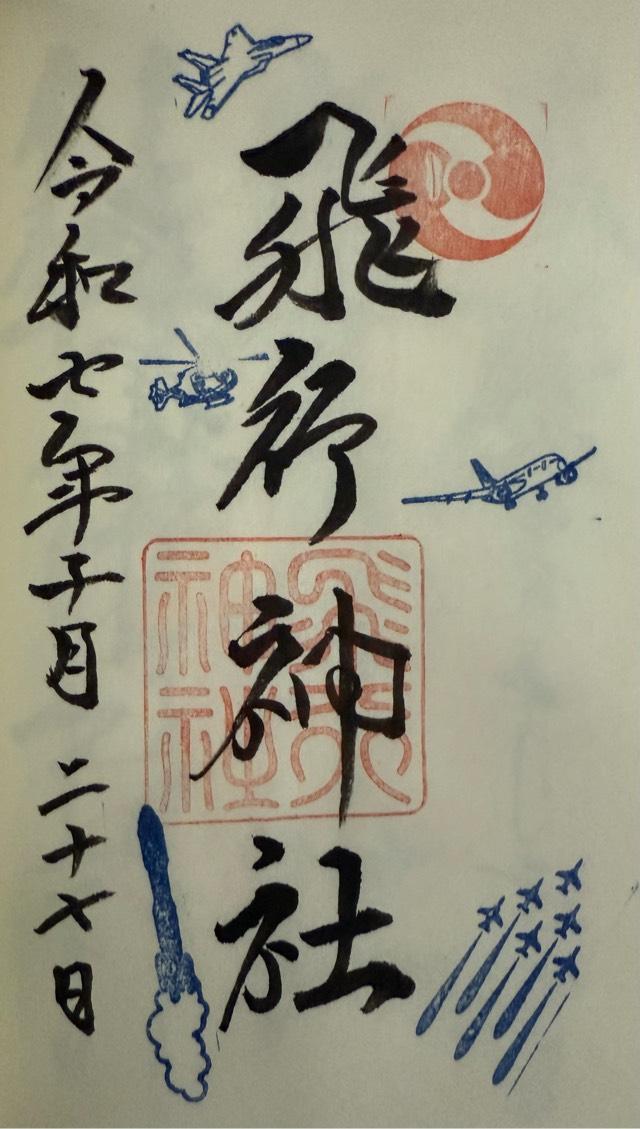 飛行神社
飛行
神社
令和七年 月二十七日